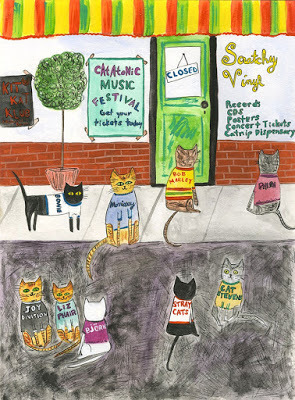 CatAtoNiC
MUSIC
FESTIVAL
Get your
tickets today
CLOSED
Vinyl
Records
CDs
Posters
Concert Tickets
Catnip Dispensary
BOWIE
Morrissey
BOB
MARLEY
PHISH
JOY
DIVISION
LIZ
PHAIR
BJORK
STRAY
CATS
CAT
STEVENS